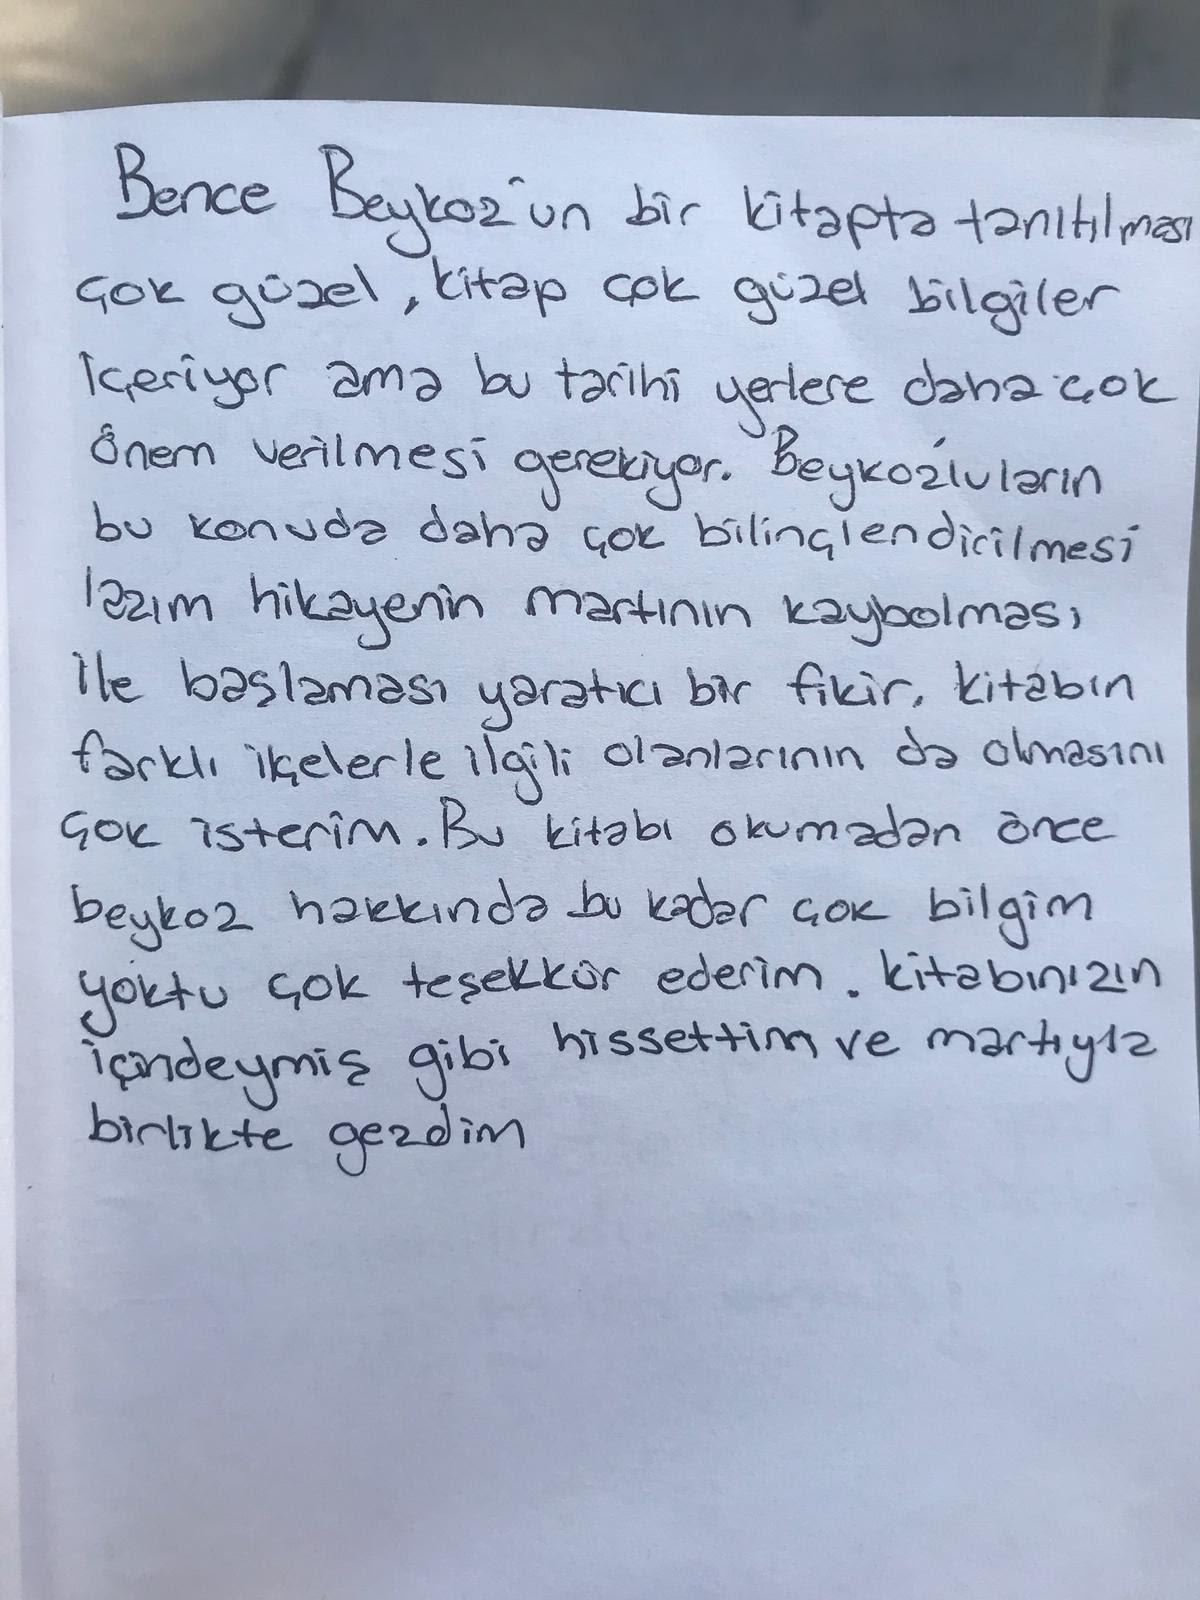 Bence Beykoz'un bir kitapta tanıtılması
çok güzel, kitap çok güzel bilgiler
içeriyor ama bu tarihi yerlere daha çok
önem verilmesi gerekiyor. Beykoz'luların
bu konuda daha çok bilinçlendirilmesi
lazım hikayenin martının kaybolması
ile başlaması yaratıcı bir fikir, kitabın
farklı ilçelerle ilgili olanlarının da olmasını
çok isterim. Bu kitabı okumadan önce
beykoz hakkında bu kadar çok bilgim
yoktu çok teşekkür ederim. kitabınızın
içindeymiş gibi hissettim ve martıyla
birlikte gezdim